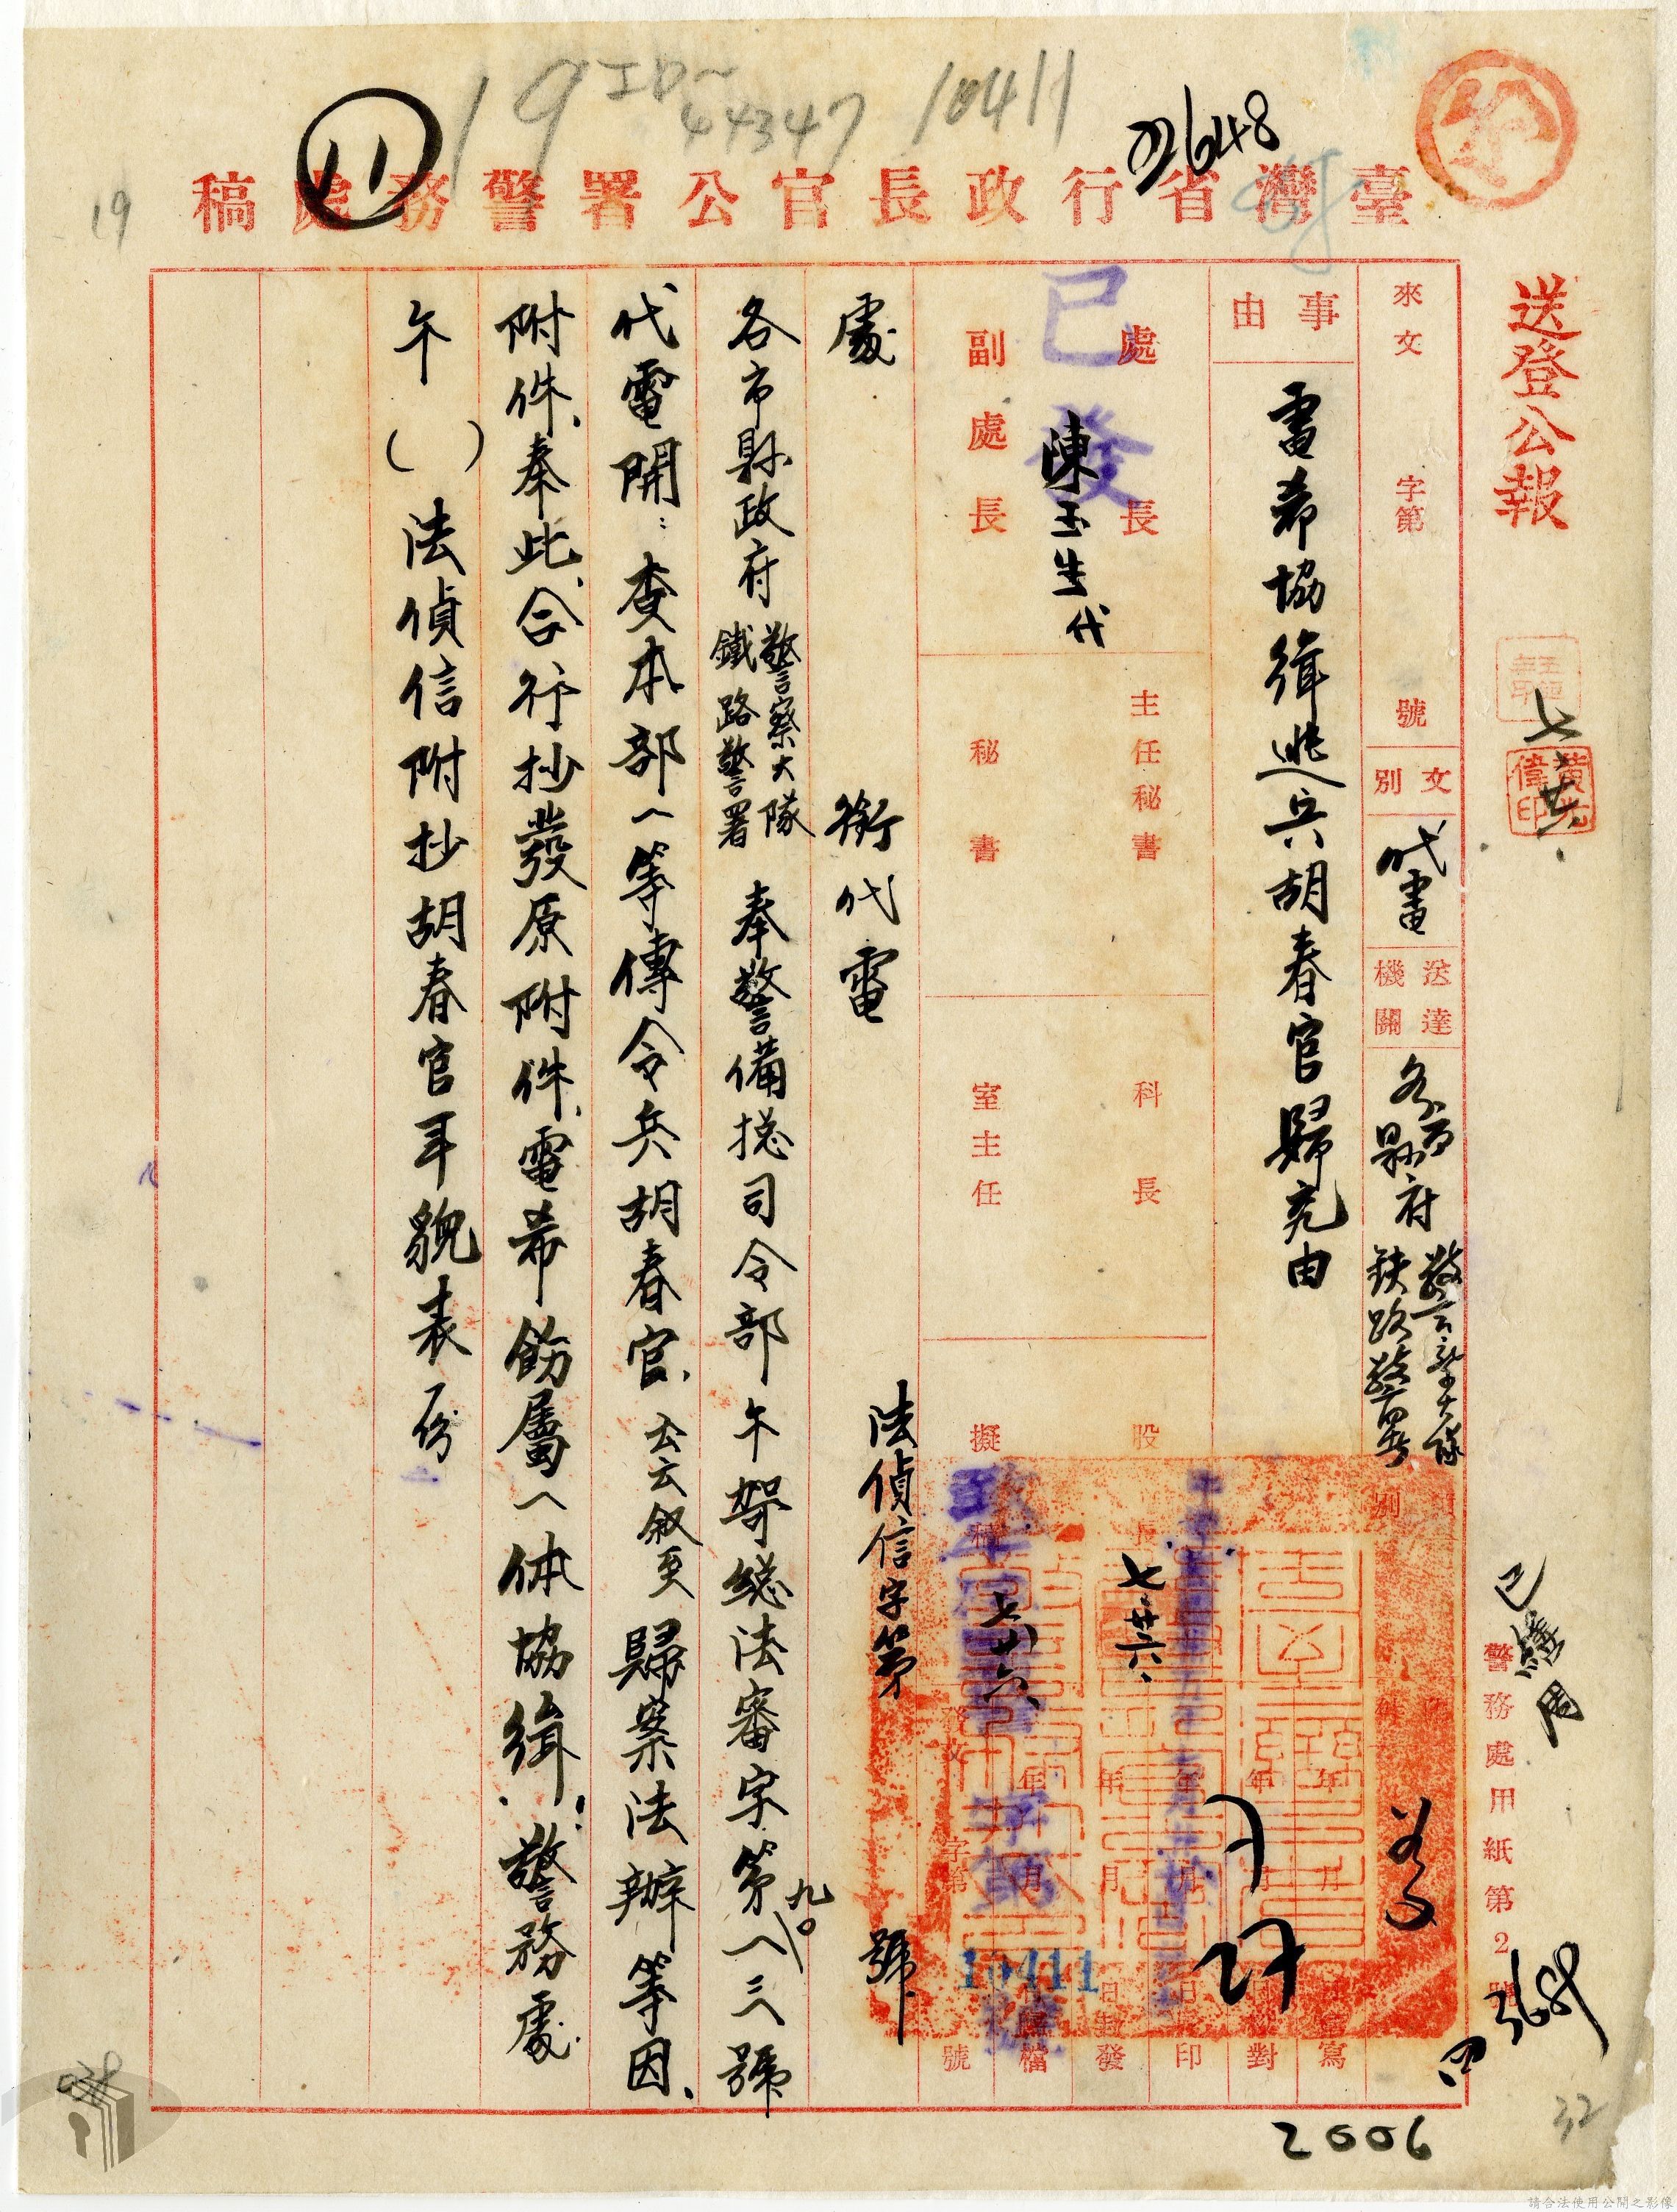 19 ID~44347 10411
11
19
臺灣省行政長官公署警務處稿
送登公報
來文 字第 號
文別 代電
送達機關 各市縣府 警察大隊 鉄路警署
事由
電希協緝逃兵胡春官歸究由
處長
副處長
已發
陳玉生代
主任秘書
秘書
科長
室主任
股長
擬稿
七 廿六
七 廿六
處 銜代電 法偵信字第 號
各市縣政府 警察大隊 鐵路警署 奉警備總司令部午 總法審字第 三號
九〇
代電開：查本部一等傳令兵胡春官、云云叙至 歸案法辦等因、
附件、奉此、合行抄發原附件、電希飭屬一体協緝、警務處
午（ ）法偵信附抄胡春官年貌表一份
年 月 日
發文 字第 號
10411
歸檔
封發
印
對
寫
警務處用紙第2號
3689
2006
32
請合法使用公開之影像